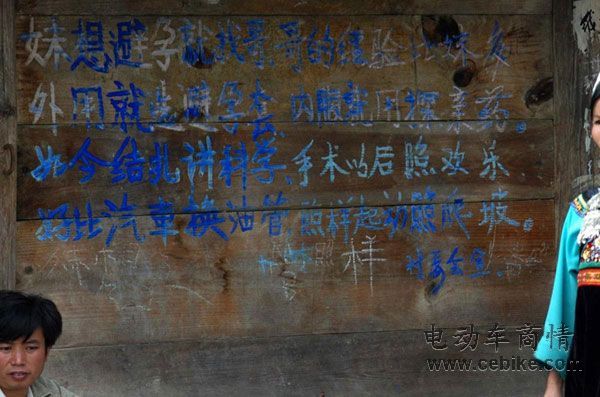 妹想避孕就找哥,哥的经验比妹多
外用就选避孕套,内服就用探亲药。
如今结扎讲科学,手术以后照欢乐
好比汽車换油管,照样起动照爬坡。
照样
电动车商情
www.cebike.com